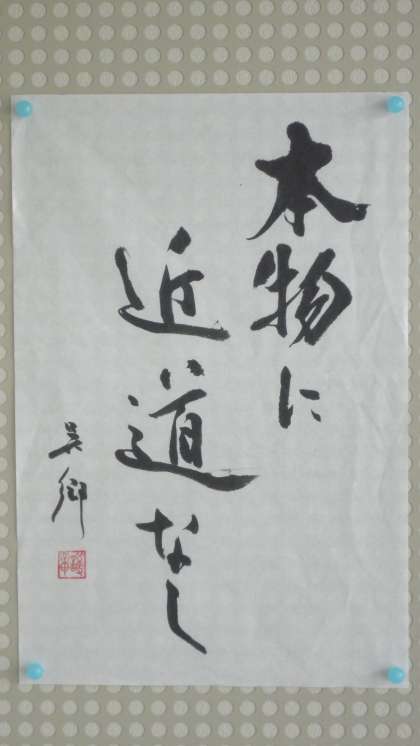 本物に
近道なし
呉郷